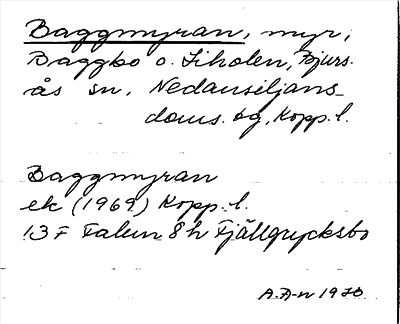 Baggmyran, myr,
Baggbo o. Liholen, Bjurs-
ås sn, Nedansiljans-
doms. bg, Kopp. l.
Baggmyran
ek (1969) Kopp. l.
13 F Falun 8 h Fjällgrycksbo
A.A-n 1970